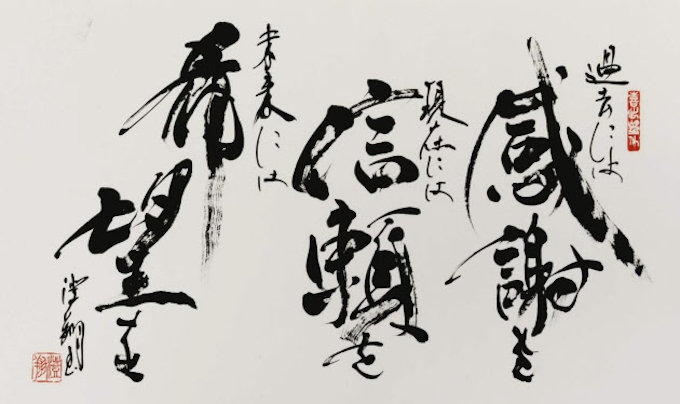 過去には
感謝を
現在には
信頼を
未来には
希望を